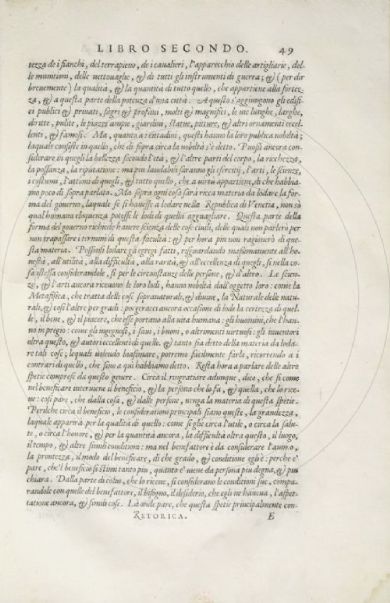 LIBRO SECONDO. 49
tezza de i fianchi, del terrapieno, de i cavalieri, l'apparecchio delle artigliarie, del-
le munitioni, delle vettovaglie, & di tutti gli instrumenti di guerra; & (per dir
brevemente) la qualità, & la quantità di tutto quello, che appartiene alla fortez-
za, & a questa parte della potenza d'una città. A questo s'aggiungono gli edifi-
ci publici & privati, sagri & profani, molti & magnifici, le vie lunghe, larghe,
dritte, polite, le piazze ampie, giardini, statue, pitture, & altri ornamenti eccel-
lenti, & famosi. Ma, quanto a i cittadini, questi hanno la loro publica nobiltà;
laquale consiste in quello, che di sopra circa la nobiltà s'è detto. Puossi ancora con-
siderare in quegli la bellezza secondo l'età, & l'altre parti del corpo, la ricchezza,
la possanza, la riputatione: ma piu laudabili saranno gli essercitij, l'arti, le scienze,
i costumi, l'attioni di quegli, & tutto quello, che a virtu appartiene, di che habbia-
mo poco di sopra parlato. Ma sopra ogni cosa sarà ricca materia da lodare la for-
ma del governo, laquale se si havesse a lodare nella Republica di Venetia, non so
qual humana eloquenza potesse le lodi di quella agguagliare. Questa parte della
forma del governo richiede havere scienza delle cose civili, delle quali non parlerò per
non trapassare i termini di questa facultà: & per hora piu non ragionerò di que-
sta materia. Possonsi lodare gli egregi fatti, risguardando massimamente all'ho-
nestà, all'utilità, alla difficultà, alla rarità, & all'eccellenza di quegli, se nella co-
sa istessa considerandole, si per le circonstanze delle persone, & d'altro. Le scien-
ze, & l'arti ancora ricevono le loro lodi, hanno nobiltà dall'oggetto loro: come la
Metafisica, che tratta delle cose sopranaturali, & divine, la Naturale delle natu-
rali, & cosi l'altre per gradi: porgerà ancora occasione di lode la certezza di quel-
le, il bene, & il piacere, che esse portano alla vita humana: gli huomini, che l'han-
no in pregio: come gli ingegnosi, i savi, i buoni, o altrimenti virtuosi: gli inventori
oltra questo, & autori eccellenti di quelle. & tanto sia detto della materia da loda-
re tali cose; lequali volendo biasimare, potremo facilmente farlo, ricorrendo a i
contrari di quello, che sino a qui habbiamo detto. Resta hora a parlare dell'altre
spetie comprese da questo genere. Circa il ringratiare adunque, dico, che si come
nel beneficare interviene il beneficio, & la persona che lo fa, & quella, che lo rice-
ve: cosi pare, che dalla cosa, & dalle persone, venga la materia di questa spetie.
Percioche circa il beneficio, le considerationi principali siano queste, la grandezza,
laquale apparirà per la qualità di quello: come se egli è circa l'utile, o circa la salu-
te, o circa l'honore, & per la quantità ancora, la difficultà oltra questo, il luogo,
il tempo, & altre simili conditioni: ma nel benefattore è da considerare l'animo,
la prontezza, il modo del beneficare, di che grado, & conditione egli è: perche e'
pare, che'l beneficio si stimi tanto piu, quanto è viene da persona piu degna, & piu
chiara. Dalla parte di colui, che lo riceve, si considerano le conditioni sue, compa-
randole con quelle del benefattore, il bisogno, il desiderio, che egli ne haveva, l'aspet-
tatione ancora, & simili cose. Là onde pare, che questa spetie principalmente con-
RETORICA. E